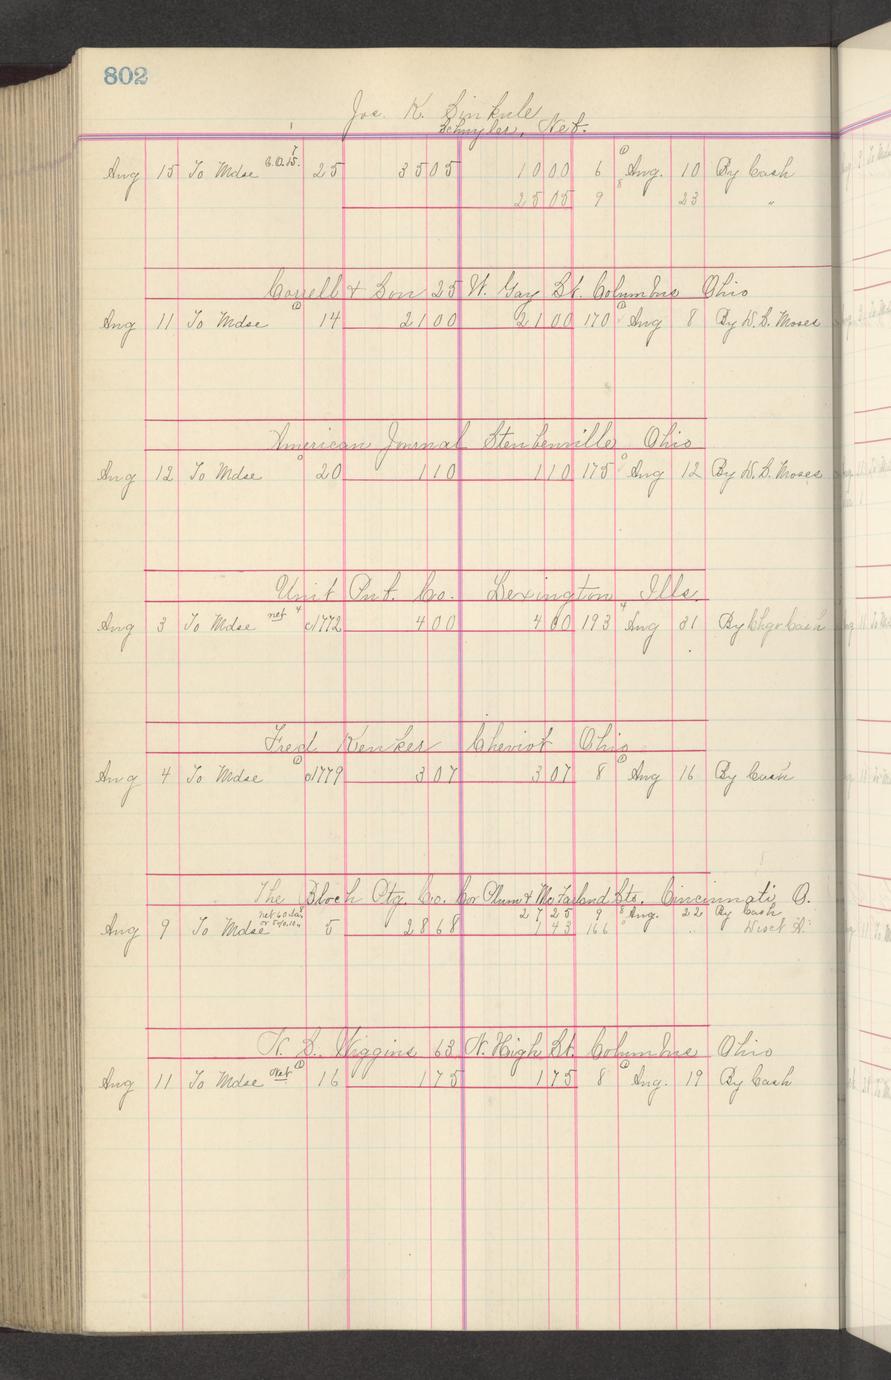 802
Jos. K. Sinkule
Schuyler, Neb.
Aug 15 To Mdse C.O.D. 25 35 05 10 00 6 Aug. 10 By Cash
25 05 9 23 "
& Son 25 W. Gay St. Columbus Ohio
Aug 11 To Mdse 14 21 00 21 00 170 Aug 8 By D. S. Moses
American Journal Steubenville Ohio
Aug 12 To Mdse 20 1 10 1 10 175 Aug 12 By D. S. Moses
Unit Pub. Co. Lexington Ills.
Aug 3 To Mdse net 4 c1772 4 00 4 00 193 4 Aug 31 By Chgs Cash
Fred Kenker Cheviot Ohio
Aug 4 To Mdse c1779 3 07 3 07 8 Aug 16 By Cash
The Bloch Ptg. Co. Cor Plum & McFarland Sts. Cincinnati, O.
net 60 da 27 25 9 8 Aug. 22 By Cash
Aug 9 To Mdse 5 28 68 1 43 166 " Disct
N. S. Wiggins 63 N. High St. Columbus Ohio
Aug 11 To Mdse Net 16 1 75 1 75 8 Aug. 19 By Cash